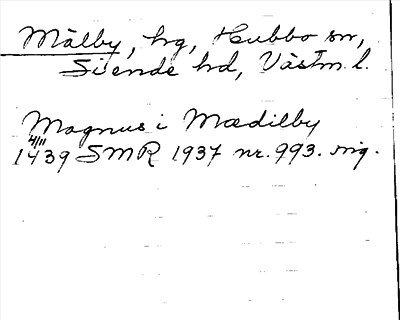 Målby, hg, Hubbo sn,
Siende hd, Västm. l.
Magnus i Mædilby
4/11
1439 SMR 1937 nr. 993. orig.